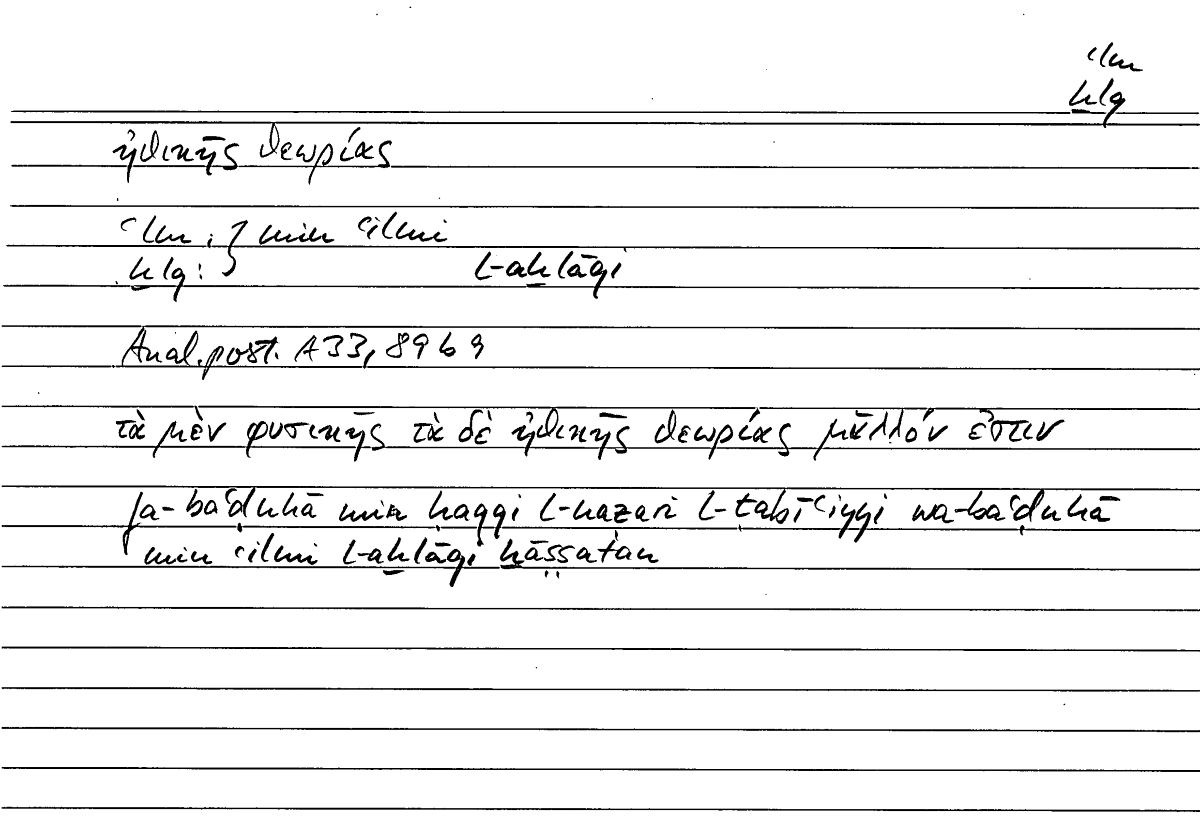 ʿlm
ḫlq
ἠθικῆς θεωρίας
ʿlm : } min ʿilmi
ḫlq : } l-aḫlāqi
Anal. post. A 33, 89 b 9
τὰ μὲν φυσικῆς τὰ δὲ ἠθικῆς θεωρίας μᾶλλόν ἐστιν
fa-baʿḍuhā min ḥaqqi l-naẓari l-ṭabīʿiyyi wa-baʿḍuhā
min ʿilmi l-aḫlāqi ḫāṣṣatan